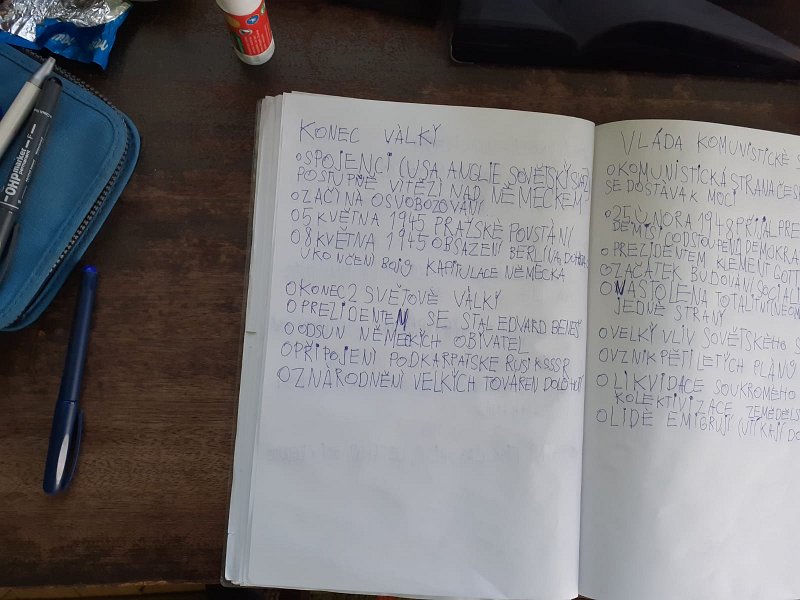 KONEC VÀLKY
SPOJENCI (USA, ANGLIE SOVĚTSKÝ SVAZ)
POSTUPNĚ VÍTĚZÍ NAD NĚMECKEM
ZAČÍNA OSVOBOZOVÁNÍ
5 KVĚTNA 1945 PRAŽSKÉ POVSTÁNÍ
8 KVĚTNA 1945 OBSAZENÍ BERLÍNA,
UKONČENÍ BOJŮ KAPITULACE NĚMECKA
KONEC 2 SVĚTOVÉ VÀLKY
PREZIDENTEM SE STAL EDVARD BENEŠ
ODSUN NĚMECKÝCH OBYVATEL
PŘIPOJENÍ PODKARPATSKE RUSI K SSSR
ZNÀRODNĚNÍ VELKÝCH TOVÀREN, DOLŮ
VLÁDA KOMUNISTICKÉ
KOMUNISTICKÁ STRANA ČESK
SE DOSTÁVÁ K MOCI
25 ÚNORA 1948 PŘIJAL PRE
DEMISI (ODSTOUPENÍ) DEMOKRA
PREZIDENTEM KLEMENT GOTT
ZAČÁTEK BUDOVÁNÍ SOCIALI
NASTOLENA TOTALITNÍ
JEDNÉ STRANY
VELKÝ VLIV SOVĚTSKÉHO S
VZNIK PĚTILETÝCH PLÁNŮ
LIKVIDACE SOUKROMÉHO
KOLEKTIVIZACE ZEMĚDĚLS
LIDÉ EMIGRUJÍ (UTÍKAJÍ DO
OHP marker